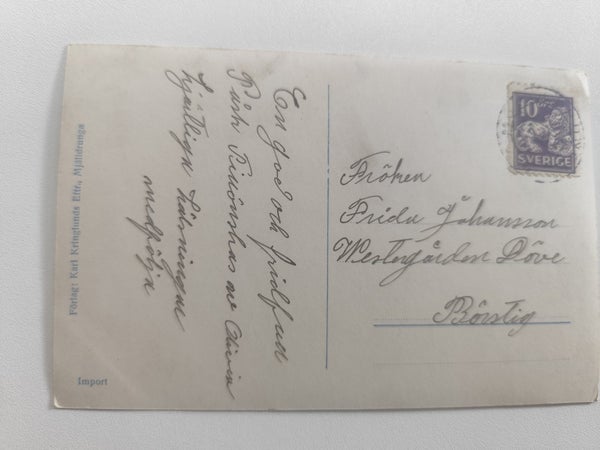 En god och fridfull
Påsk tillönskas av
hjärtliga hälsningar
medfölja
Fröken
Frida Johansson
Westergården Döve
Börstig
10
SVERIGE
Förlag: Karl Kringlunds Eftr., Mjälldrunga
Import